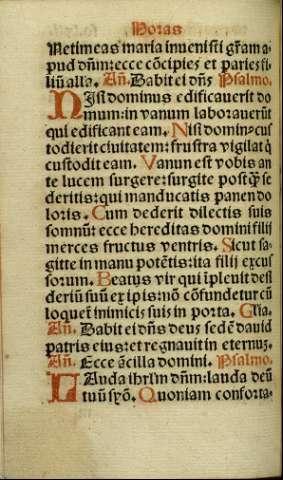 Horas
Netimeas maria invenisti gr̄am a-
pud dn̄m: ecce cōcipies et paries fi-
liū alla. An̄. Dabit ei dn̄s Psalmo.
NIsi dominus edificauerit do
mum: in vanum laborauerūt
qui edificant eam. Nisi domin⁹ cus
todierit ciuitatem: frustra vigilat q̄
custodit eam. Vanum est vobis an
te lucem surgere: surgite postq̄ȝ se
deritis: qui manducatis panem do
loris. Cum dederit dilectis suis
somnū: ecce hereditas domini filij
merces fructus ventris. Sicut sa-
gitte in manu potētis: ita filij excus
sorum. Beatus vir qui īpleuit desi
deriū suū ex ipis: nō cōfundetur cū
loquet̄ inimicis suis in porta. Glīa.
An̄. Dabit ei dn̄s deus sedē dauid
patris eius: et regnauit in eternuȝ.
An̄. Ecce ācilla domini. Psalmo.
LAuda ihrl̄m dn̄m: lauda deū
tuū syō. Quoniam conforta-